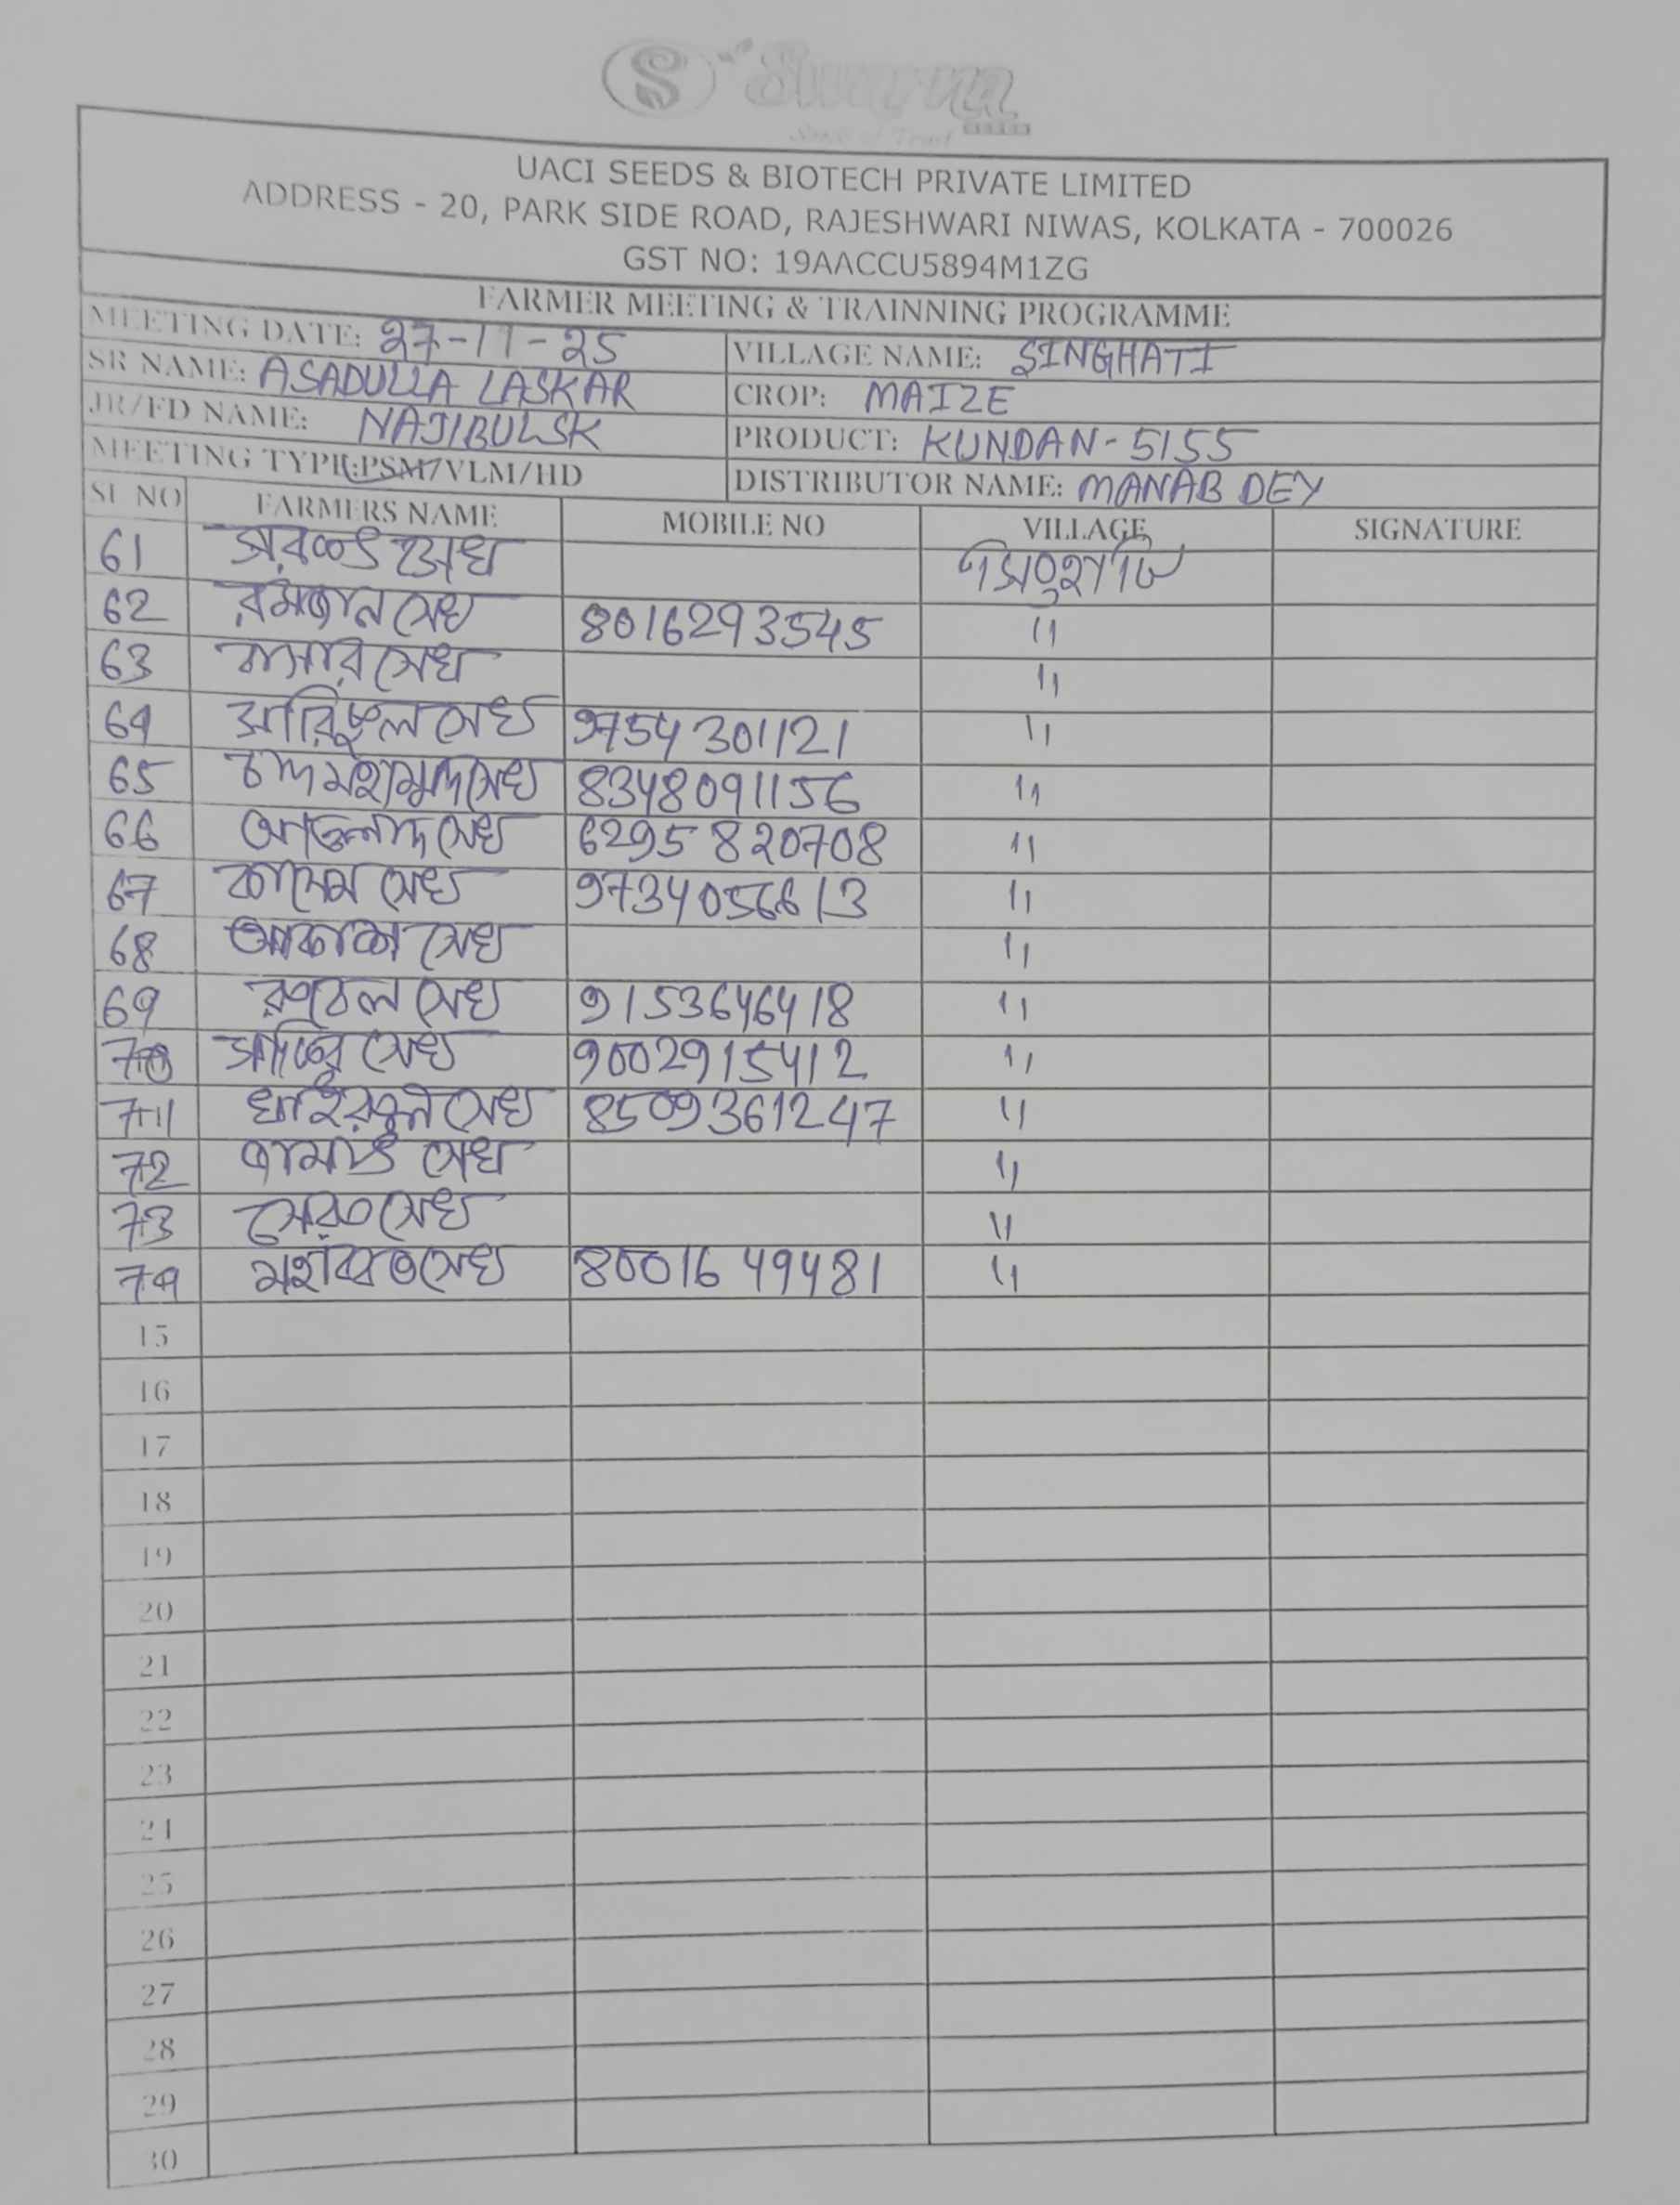 S Swarna
UACI SEEDS & BIOTECH PRIVATE LIMITED
ADDRESS - 20, PARK SIDE ROAD, RAJESHWARI NIWAS, KOLKATA - 700026
GST NO: 19AACCU5894M1ZG
FARMER MEETING & TRAINNING PROGRAMME
MEETING DATE: 27-11-25 VILLAGE NAME: SINGHATI
SR NAME: ASADULLA LASKAR CROP: MAIZE
JR/FD NAME: NAJIBUL SK PRODUCT: KUNDAN-5155
MEETING TYPE: PSM/VLM/HD DISTRIBUTOR NAME: MANAB DEY
SL NO FARMERS NAME MOBILE NO VILLAGE SIGNATURE
61 সেখ
62 রমজান সেখ 8016293545 11
63 সেখ 11
64 সেখ 9754301121 11
65 চাঁদ মহাম্মদ সেখ 8348091156 11
66 সেখ 6295820708 11
67 কাসেম সেখ 9734056613 11
68 আকাশ সেখ 11
69 সেখ 9153646418 11
70 সেখ 9002915412 11
71 খাইরুল সেখ 8509361247 11
72 সেখ 11
73 সেখ 11
74 মহব্বত সেখ 8001649481 11
15
16
17
18
19
20
21
22
23
24
25
26
27
28
29
30